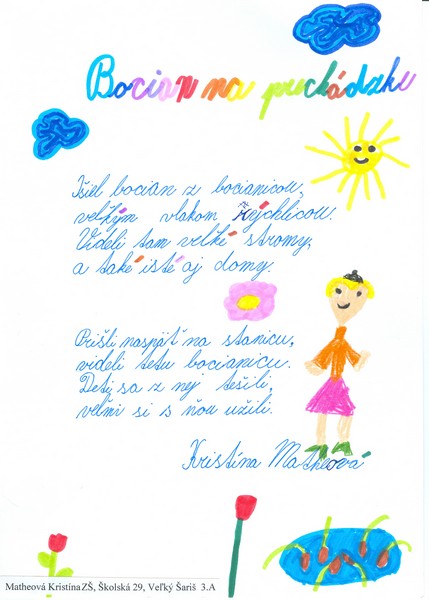 Bocian na prechádzke
Išiel bocian z bocianicou,
veľkým vlakom rýchlicou.
Videli tam veľké stromy,
a také isté aj domy.
Prišli naspäť na stanicu,
videli tetu bocianicu.
Deti sa z nej tešili,
veľmi si s ňou užili.
Kristína Matheová
Matheová Kristína ZŠ, Školská 29, Veľký Šariš 3.A